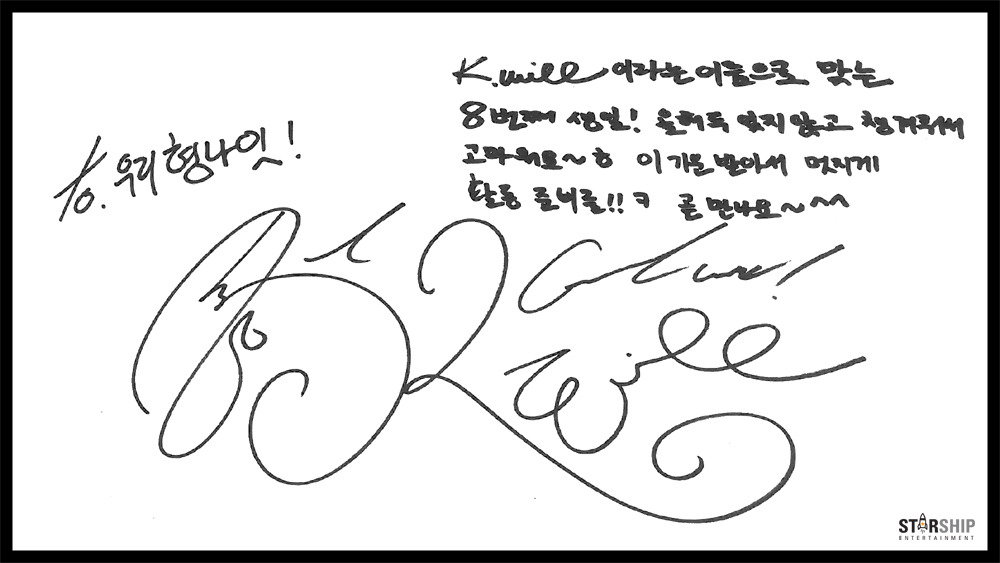 to. 우리 형나잇!
K.will 이라는 이름으로 맞는
8번째 생일! 올해도 잊지않고 챙겨줘서
고마워요~ㅎ 이 기운 받아서 멋지게
활동 준비를!! ㅋ 곧 만나요~^^
Good luck!
K
will
STARSHIP
ENTERTAINMENT